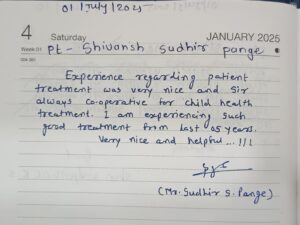 01 July/2025
4 Saturday JANUARY 2025
Week 01
Pt - Shivansh Sudhir Pange
004-361
Experience regarding patient
treatment was very nice and Sir
always co-operative for child health
treatment. I am experiencing such
good treatment from last 05 years.
Very nice and helpful...!!!
(Mr. Sudhir S. Pange)